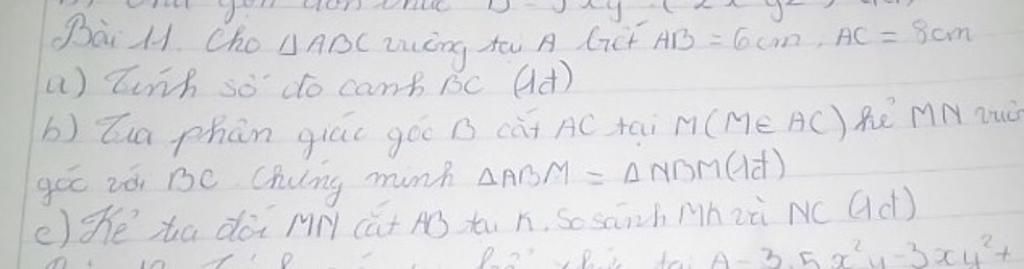 Bài 11. Cho ΔABC vuông tại A biết AB = 6cm, AC = 8cm
a) Tính số đo cạnh BC (1đ)
b) Tia phân giác góc B cắt AC tại M (M ∈ AC) kẻ MN
góc với BC. Chứng minh ΔABM = ΔNBM (1đ)
c) Kẻ tia đối MN cắt AB tại K. So sánh MK và NC (1đ)
A = 3,5x²y - 3xy² +